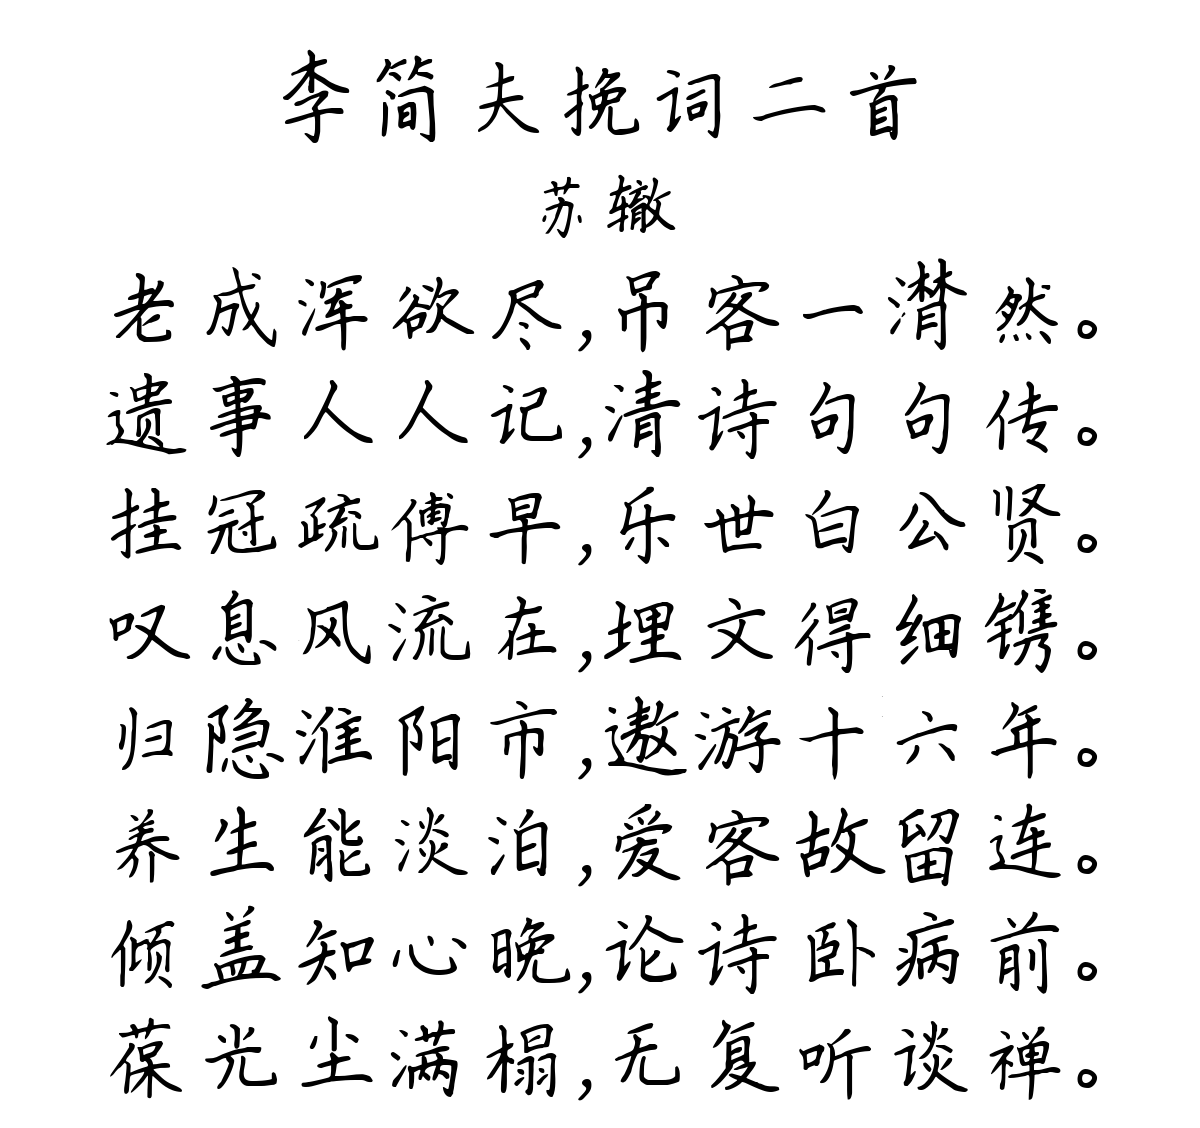 李简夫挽词二首
苏辙
老成浑欲尽,吊客一潸然。
遗事人人记,清诗句句传。
挂冠疏傅早,乐世白公贤。
叹息风流在,埋文得细镌。
归隐淮阳市,遨游十六年。
养生能淡泊,爱客故留连。
倾盖知心晚,论诗卧病前。
葆光尘满榻,无复听谈禅。